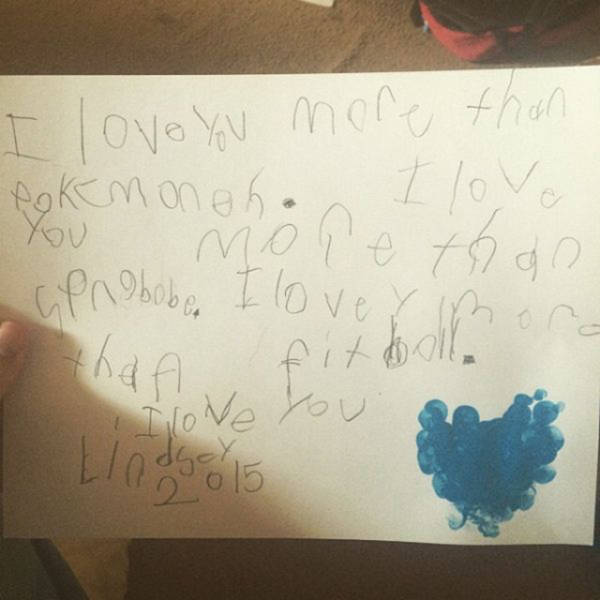 I love you more than
pokemoneh. I love
you more than
spngbobe. I love y more
than fitboll.
I love you
Lindsey
2015